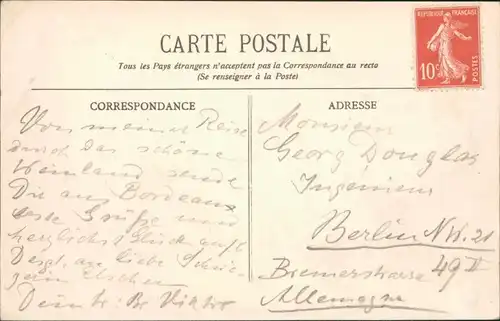 RÉPUBLIQUE FRANÇAISE
10c
POSTES
CARTE POSTALE
Tous les Pays étrangers n'acceptent pas la Correspondance au recto
(Se renseigner à la Poste)
CORRESPONDANCE
Von meiner Reise
durch das schöne
Weinland sende
Dir aus Bordeaux
beste Grüße und
herzlichst
an liebe
Dein
ADRESSE
Monsieur
Georg Douglas
Ingenieur
Berlin N.W. 21
Bremerstrasse 49 II
Allemagne